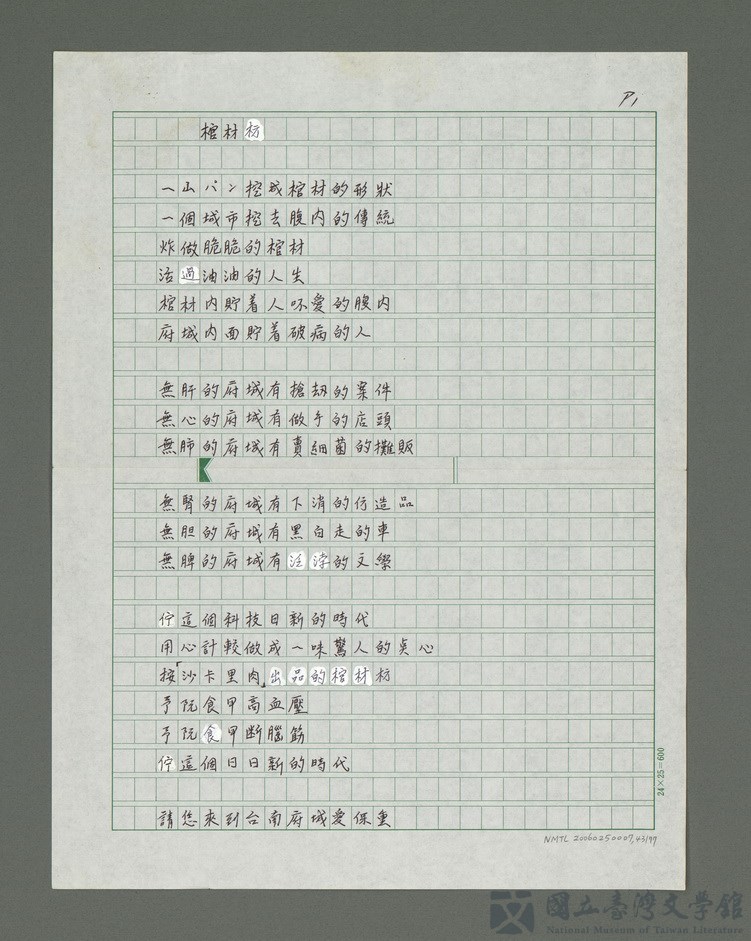 P1
棺材枋
一山パン挖成棺材的形狀
一個城市挖去腹內的傳統
炸做脆脆的棺材
活過油油的人生
棺材內貯着人呸愛的腹內
府城內面貯着破病的人
無肝的府城有搶刼的案件
無心的府城有做手的店頭
無肺的府城有賣細菌的攤販
無腎的府城有下消的仿造品
無胆的府城有黑白走的車
無脾的府城有的文學
佇這個科技日新的時代
用心計較做成一味驚人的點心
按「沙卡里肉」出品的棺材枋
予阮食甲高血壓
予阮食甲斷腦筋
佇這個日日新的時代
請您來到台南府城愛保重
24×25=600
NMTL 20060250007,43/97
國立臺灣文學館
National Museum of Taiwan Literature